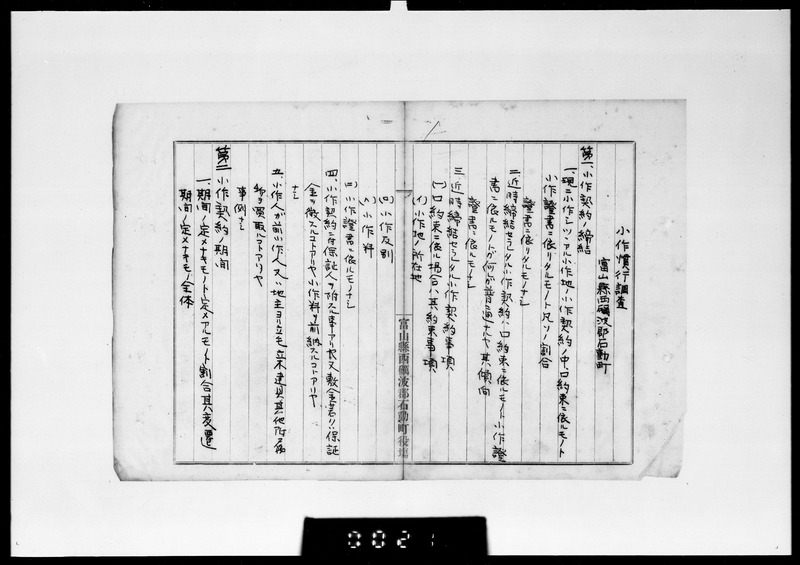 小作慣行調査
富山縣西礪波郡石動町
第一、小作契約ノ締結
一、現ニ小作シツヽアル小作地ノ小作契約ノ中、口約束ニ依ルモノト
小作證書ニ依リタルモノト凡ソノ割合
證書ニ依リタルモノナシ
二、近時締結セラレタル小作契約ハ口約束ニ依ルモノト小作證
書ニ依ルモノト何レガ普通ナルヤ其傾向
證書ニ依ルモノナシ
三、近時締結セラレタル小作契約事項
(一)口約束ニ依ル場合ハ其約束事項
(イ)小作地ノ所在地
富山縣西礪波郡石動町役場
(ロ)小作反別
(ハ)小作料
(二)小作證書ニ依ルモノナシ
四、小作契約ニ付保証人ヲ附スル事アリヤ又敷金若ハ保証
金ヲ徴スルコトアリヤ小作料ヲ前納スルコトアリヤ
ナシ
五、小作人が前小作人又ハ地主ヨリ立毛立木建具其他附属
物ヲ買取ルコトアリヤ
事例ナシ
第二 小作契約ノ期間
一、期間ノ定メナキモノト定メアルモノト割合其変遷
期間ノ定メナキモノ全体
0021